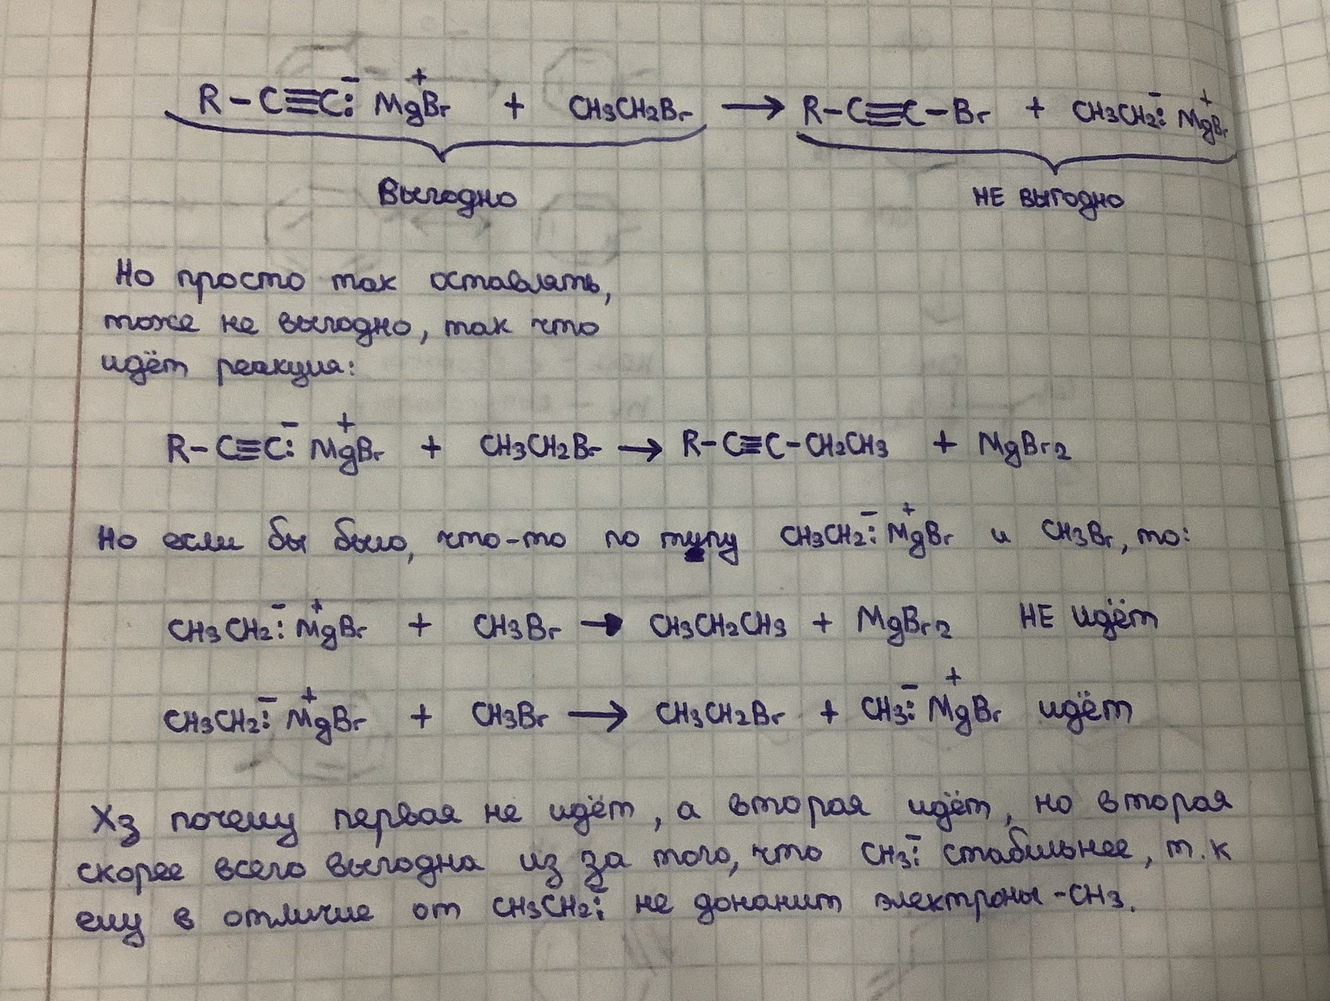 R-C≡C:⁻ MgBr⁺ + CH3CH2Br → R-C≡C-Br + CH3CH2:⁻ MgBr⁺
Выгодно НЕ выгодно
Но просто так оставлять,
тоже не выгодно, так что
идёт реакция:
R-C≡C:⁻ MgBr⁺ + CH3CH2Br → R-C≡C-CH2CH3 + MgBr2
Но если бы было, что-то по типу CH3CH2:⁻ MgBr⁺ и CH3Br, то:
CH3CH2:⁻ MgBr⁺ + CH3Br → CH3CH2CH3 + MgBr2 НЕ идёт
CH3CH2:⁻ MgBr⁺ + CH3Br → CH3CH2Br + CH3:⁻ MgBr⁺ идёт
Хз почему первая не идёт, а вторая идёт, но вторая
скорее всего выгодна из за того, что CH3:⁻ стабильнее, т.к
ему в отличие от CH3CH2:⁻ не донанит электроны -CH3.